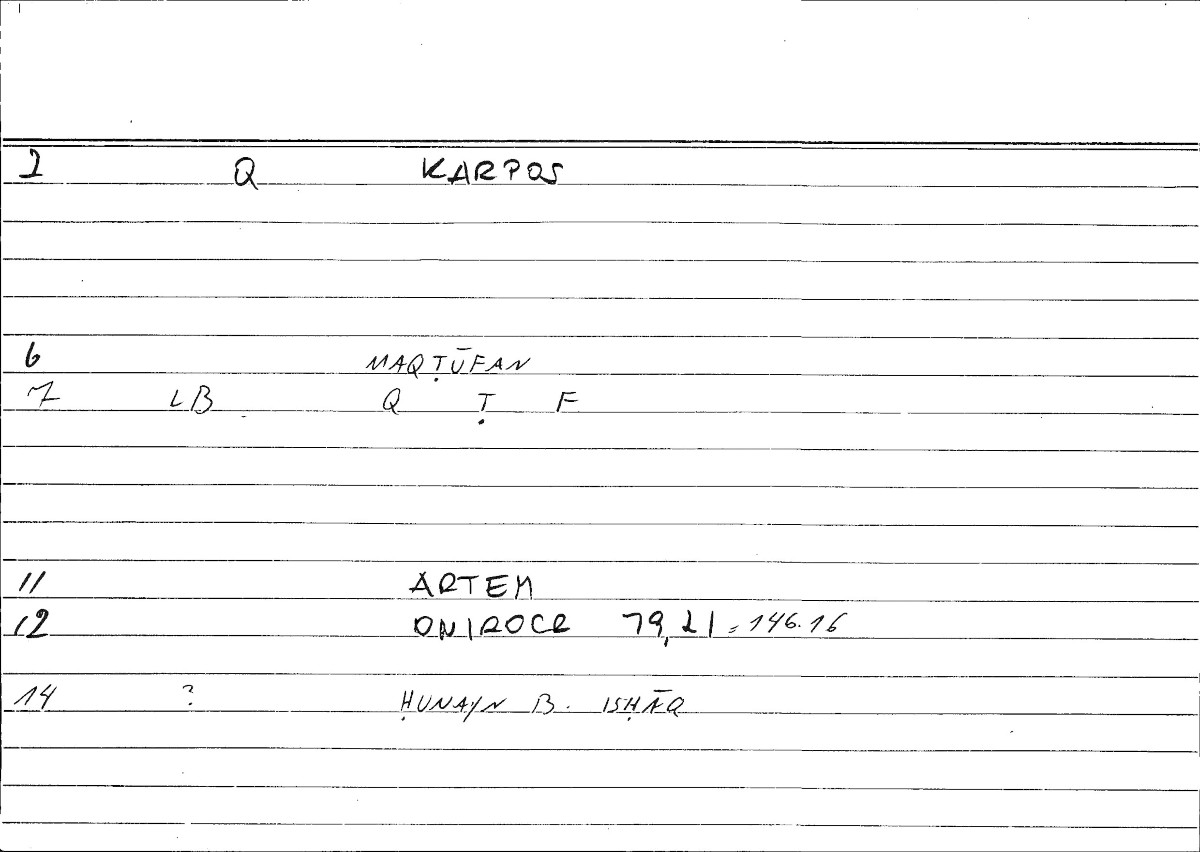 1 Q KARPOS
6 MAQṬŪFAN
7 LB Q Ṭ F
11 ARTEM
12 ONIROCR 79,21 = 146.16
14 ? ḤUNAYN B. ISḤĀQ